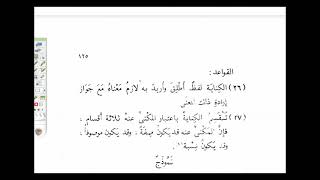 ١٢٥
القواعد :
(٢٦) الكِنايَة لفظٌ أُطْلِقَ وأُريدَ به لازمُ مَعْنَاهُ مَعَ جَوَازِ
إرادةِ ذلك المعنى
(٢٧) تَنْقَسِمُ الكِنايةُ باعتبارِ المكْنِيِّ عنه ثلاثةَ أقسامٍ ،
فإنَّ المكْنِيَّ عنه قد يكونُ صِفَةً ، وقد يكون موصوفاً ،
وقد يكونُ نِسبةً
نَمُوذَجٌ